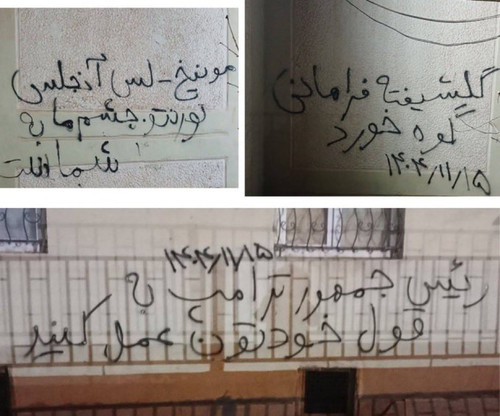 مونیخ - لس آنجلس
تورنتو. چشم ما به
شما است
گلشیفته فراهانی
گوه خورد
۱۴۰۴/۱۱/۱۵
۱۴۰۴/۱۱/۱۵
رئیس جمهور ترامپ به
قول خودتون عمل کنید